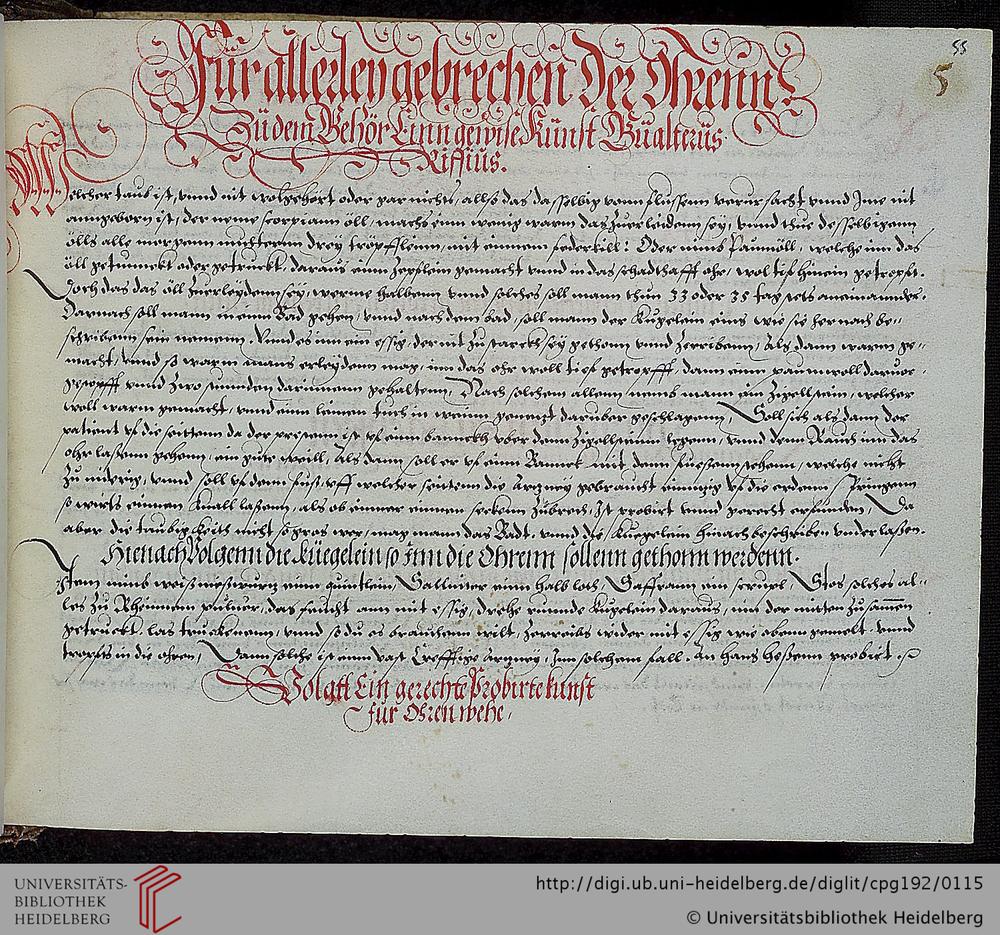 55
5
Für allerley gebrechen Der Ohrenn.
Zu dem Gehör Einn gewise Kunst Gualterus
Riffius.
Welcher taub ist, vnnd nit wolgehört oder gar nichts, allß das dasselbig vonn flussenn verursacht vnnd Ime nit
anngeborn ist, der neme scorpiann öll, machs ein wenig warm das zuerleidenn sey, vnnd thue desselbigenn
ölls alle morgenn nuchternn drey tröpffleinn, mit einnem federkill: Oder nims Paumöll, welche inn das
öll getunnckt oder getruckt, daraus einn Zepflein gemacht vnnd in das schadthafft ohr, wol tief hinein getropft.
Doch das das öll zuerleydenn sey, werme halbenn vnnd solches soll mann thun 33 oder 35 tag stets aneinannder.
Darnach soll mann in einn Bad gehen, vnnd nach dem bad, soll mann der Kugelein eins wie sie hernach be-
schribenn sein nemenn. Vnnd es inn ein essig, der nit zu starckh sey gethonn vnnd zerribenn, Als dann warm ge-
macht, vnnd so warm mans erleydenn mag, inn das ohr woll tief getropfft, dann einn paumwoll daruor
gestopfft vnnd zwo stunnden darinnenn gehaltenn, Nach solchen allem nemb mann ein Zigellstein, welcher
woll warm gemacht, vnnd einn leinen tuch in wein genezt daruber geschlagenn, Soll sich als dann der
patient vf die seittenn da der prestenn ist vf einn banckh vber denn Zigellstein legenn, vnnd denn Rauch inn das
ohr lassenn gehenn, ein gute weill, Als dann soll er vf einn Banck mit denn fuessenn stehenn, welche nicht
zu niderig, vnnd soll vf dem fuß, vff welcher seittenn die Arzney gebraucht einnzig vf die erdenn springenn
so wirts einnen Knall lassenn, als ob einner einnen steckenn zubrech, Ist probirt vnnd gerecht erfunden, Da
aber die taubigkeith nicht so gros wer, mag mann das Badt, vnnd die Kuegelein hinach beschriben vnderlassen.
Hienach Volgenn die kuegelein so Inn die Ohrenn sollenn gethonn werdenn.
Item nimb weiß nießwurz einn quintlein, Salliter einn halb loth, Saffrann ein scrupel, Stos solches al-
les zu Kleinnem puluer, das feücht ann mit essig, drehe runnde Kugelein daraus, inn der mitten zusamen
getruckt, las truckenenn, vnnd so du es brauchenn wilt, zerreibs wider mit essig wie obenn gemelt, vnnd
tropffs in die ohren, Dann solche ist einn vast Trefflige Arzney, Inn solchem fall. An Hans Hessenn probirt.
Volgtt Ein gerechte Probirte kunst
für Ohren wehe.
UNIVERSITÄTS-
BIBLIOTHEK
HEIDELBERG
http://digi.ub.uni-heidelberg.de/diglit/cpg192/0115
© Universitätsbibliothek Heidelberg